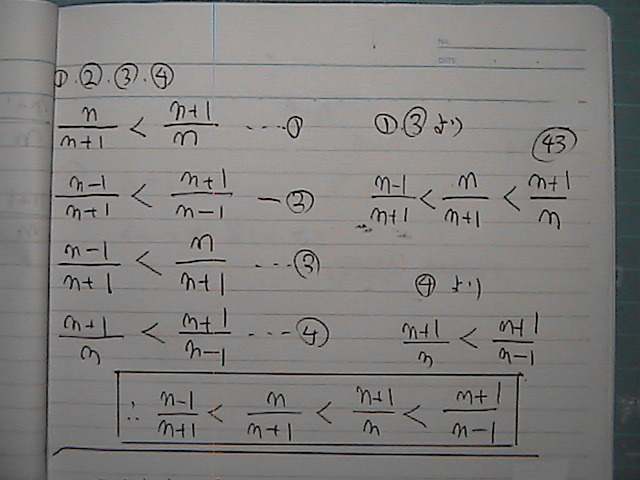 NO.
DATE
①.②.③.④
n/(n+1) < (n+1)/n ----①
(n-1)/(n+1) < (n+1)/(n-1) —②
(n-1)/(n+1) < n/(n+1) ---③
(n+1)/n < (n+1)/(n-1) ----④
①.③より
㊸
(n-1)/(n+1) < n/(n+1) < (n+1)/n
④より
(n+1)/n < (n+1)/(n-1)
∴ (n-1)/(n+1) < n/(n+1) < (n+1)/n < (n+1)/(n-1)